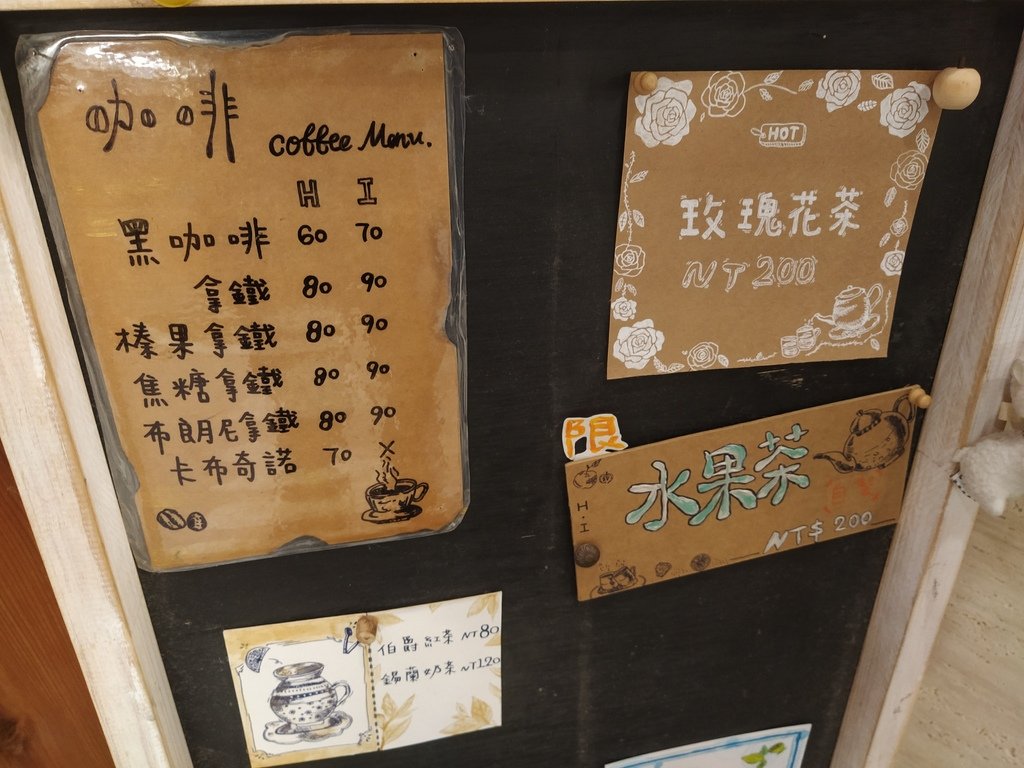 咖啡
coffee Menu.
H I
黑咖啡 60 70
拿鐵 80 90
榛果拿鐵 80 90
焦糖拿鐵 80 90
布朗尼拿鐵 80 90
卡布奇諾 70 X
HOT
玫瑰花茶
NT 200
限
水果茶
H.I
NT$ 200
伯爵紅茶 NT80
錫蘭奶茶 NT120